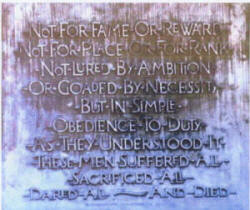 NOT FOR FAME OR REWARD
NOT FOR PLACE OR FOR RANK
NOT LURED BY AMBITION
OR GOADED BY NECESSITY
BUT IN SIMPLE
OBEDIENCE TO DUTY
AS THEY UNDERSTOOD IT
THESE MEN SUFFERED ALL
SACRIFICED ALL
DARED ALL — AND DIED